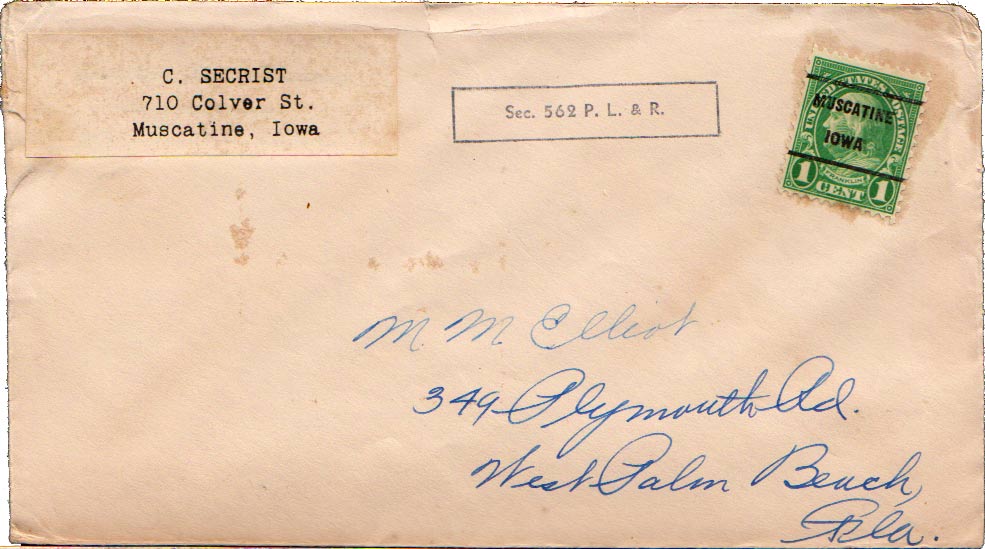 C. SECRIST
710 Colver St.
Muscatine, Iowa
Sec. 562 P. L. & R.
UNITED STATES POSTAGE
MUSCATINE
IOWA
FRANKLIN
1 CENT 1
M. M. Elliot
349 Plymouth Rd.
West Palm Beach,
Fla.